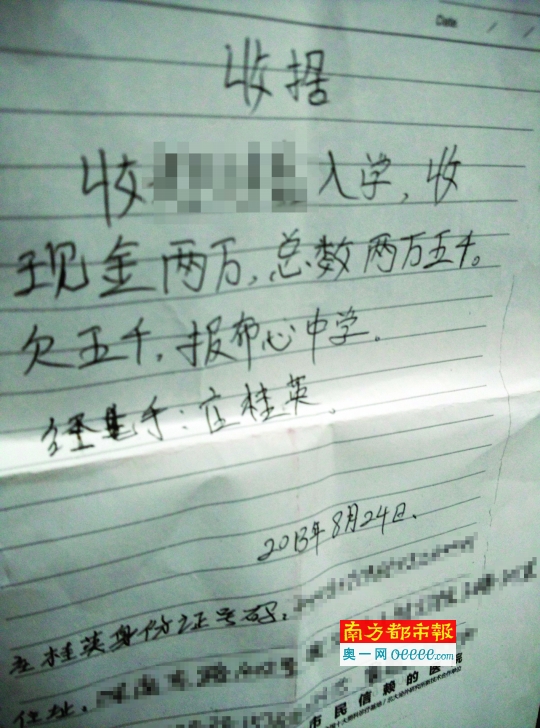 Date / /
收据
收 入学,收
现金两万,总数两万五千。
欠五千,报布心中学。
经手:应桂英
2013年8月24日、
应桂英身份证号码:
住址、
南方都市報
奥一网 oeeee.com
市民信赖的医院